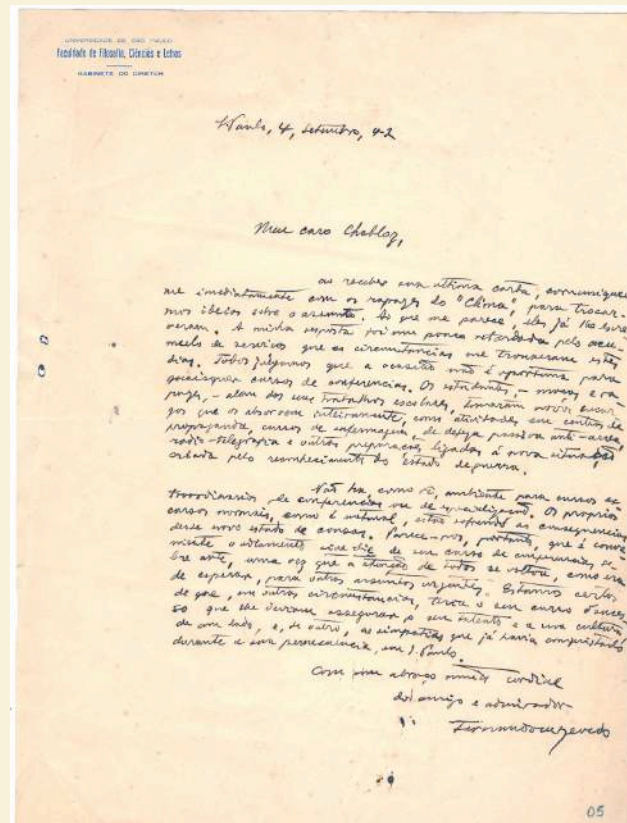 UNIVERSIDADE DE SÃO PAULO
Faculdade de Filosofia, Ciências e Letras
GABINETE DO DIRETOR
S. Paulo, 4, setembro, 42
Meu caro Chabloz,
ao receber sua última carta, comuniquei-
me imediatamente com os rapazes do "Clima", para trocar-
mos idéias sobre o assunto. Ao que me parece, eles já lhe escre-
veram. A minha resposta foi um pouco retardada pelo acu-
mulo de serviços que as circunstancias me trouxeram estes
dias. Todos julgamos que a ocasião não é oportuna para
quaisquer cursos de conferencias. Os estudantes, - moças e ra-
pazes, - alem dos seus trabalhos escolares, tomaram novos encar-
gos que os absorvem inteiramente, como atividades em centros de
propaganda, cursos de enfermagem, de defesa passiva anti-aerea,
radio-telegrafia e outras preparações ligadas á nova situação
criada pelo reconhecimento do estado de guerra.
Não ha, como vê, ambiente para cursos ex-
traordinarios de conferencias ou de especialização. Os proprios
cursos normais, como é natural, estão sofrendo as consequencias
desse novo estado de cousas. Parece-nos, portanto, que é conve-
niente o adiamento sine die de seu curso de conferencias so-
bre arte, uma vez que a atenção de todos se voltou, como era
de esperar, para outros assuntos urgentes. Estamos certos
de que, em outras circunstancias, teria o seu curso o suces-
so que lhe deviam assegurar o seu talento e a sua cultura,
de um lado, e, de outro, as simpatias que já havia conquistado
durante a sua permanencia, em S. Paulo.
Com um abraço muito cordial
do amigo e admirador
Fernando de Azevedo
05